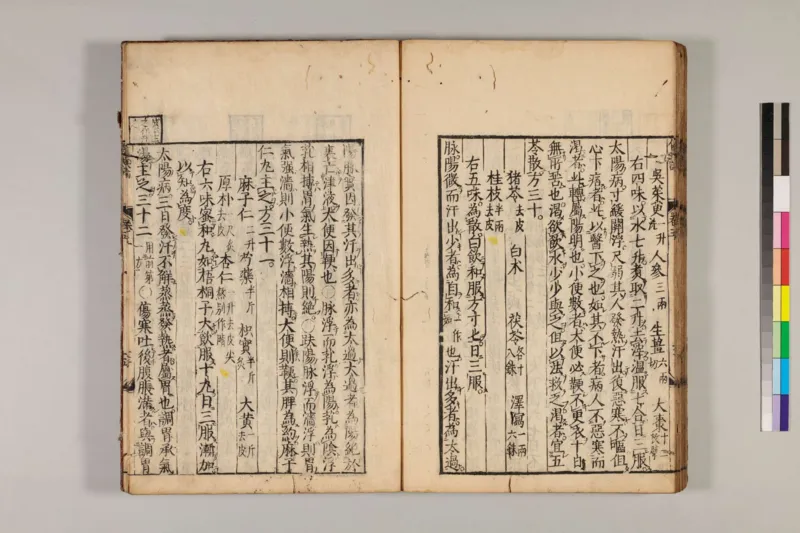 吳茱更一升 人參三兩 生薑六兩切 大棗十二
右四味以水七升煮取二升去滓溫服七合日三服
太陽病寸緩關浮尺弱其人發熱汗出復惡寒不嘔但
心下痞者此以醫下之也如其不下者病人不惡寒而
渴者此轉屬陽明也小便數者大便必鞕不更衣十日
無所苦也渴欲飲水少少與之但以法救之渴者宜五
苓散方三十
猪苓去皮 白朮 茯苓各十八銖 澤瀉一兩六銖
桂枝半兩去皮
右五味為散白飲和服方寸匕日三服
脉陽微而汗出少者為自和一作也汗出多者為太過
陽脉實因發其汗出多者亦為太過太過者為陽絕於
裏亡津液大便因鞕也○脉浮而芤浮為陽芤為陰浮
芤相搏胃氣生熱其陽則絕○趺陽脉浮而濇浮則胃
氣强濇則小便數浮濇相搏大便則鞕其脾為約麻子
仁丸主之方三十一
麻子仁二升 芍藥半斤 枳實半斤 大黃一斤去皮
厚朴一尺去皮 杏仁一升去皮尖熬別作脂
右六味蜜和丸如梧桐子大飲服十九日三服漸加
以知為度
太陽病三日發汗不解蒸蒸發熱者屬胃也調胃承氣
湯主之三十二用前第一方○傷寒吐後腹脹滿者與調胃